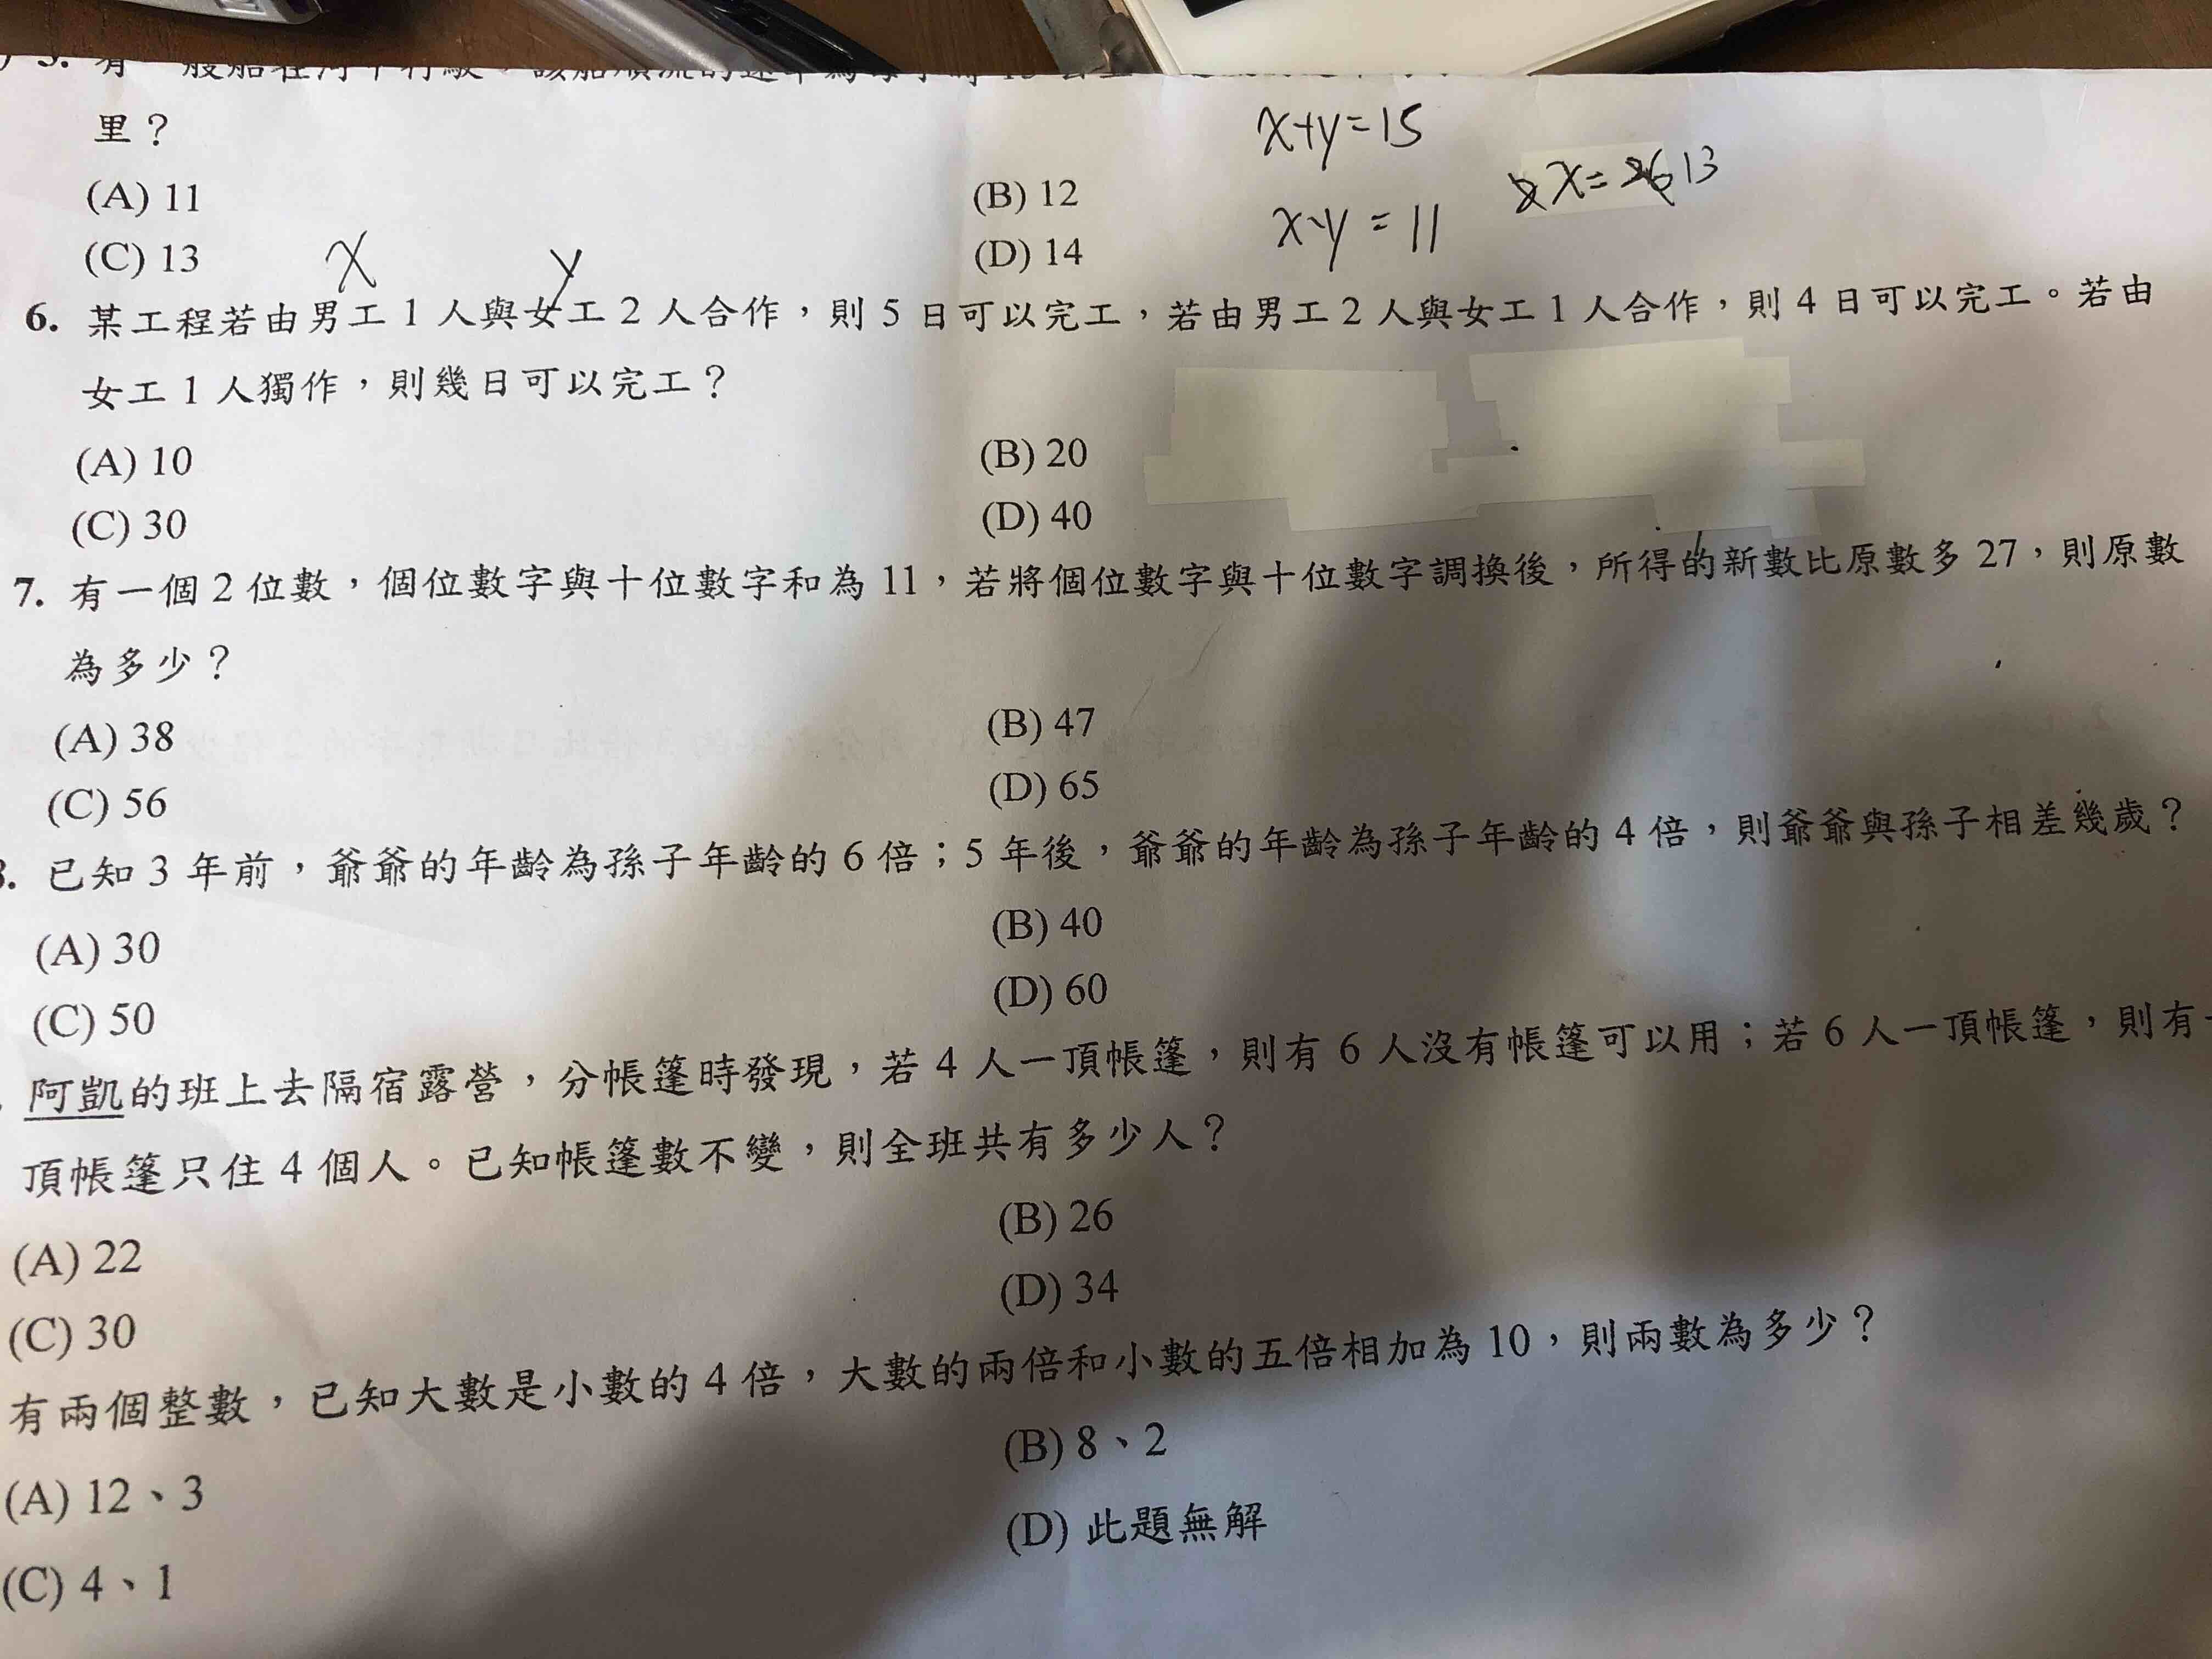 里？
(A) 11
(B) 12
(C) 13
(D) 14
x+y=15
x-y=11
x=13
x
y
6. 某工程若由男工1人與女工2人合作，則5日可以完工，若由男工2人與女工1人合作，則4日可以完工。若由
女工1人獨作，則幾日可以完工？
(A) 10
(B) 20
(C) 30
(D) 40
7. 有一個2位數，個位數字與十位數字和為11，若將個位數字與十位數字調換後，所得的新數比原數多27，則原數
為多少？
(A) 38
(B) 47
(C) 56
(D) 65
已知3年前，爺爺的年齡為孫子年齡的6倍；5年後，爺爺的年齡為孫子年齡的4倍，則爺爺與孫子相差幾歲？
(A) 30
(B) 40
(C) 50
(D) 60
阿凱的班上去隔宿露營，分帳篷時發現，若4人一頂帳篷，則有6人沒有帳篷可以用；若6人一頂帳篷，則有
頂帳篷只住4個人。已知帳篷數不變，則全班共有多少人？
(A) 22
(B) 26
(C) 30
(D) 34
有兩個整數，已知大數是小數的4倍，大數的兩倍和小數的五倍相加為10，則兩數為多少？
(A) 12、3
(B) 8、2
(C) 4、1
(D) 此題無解